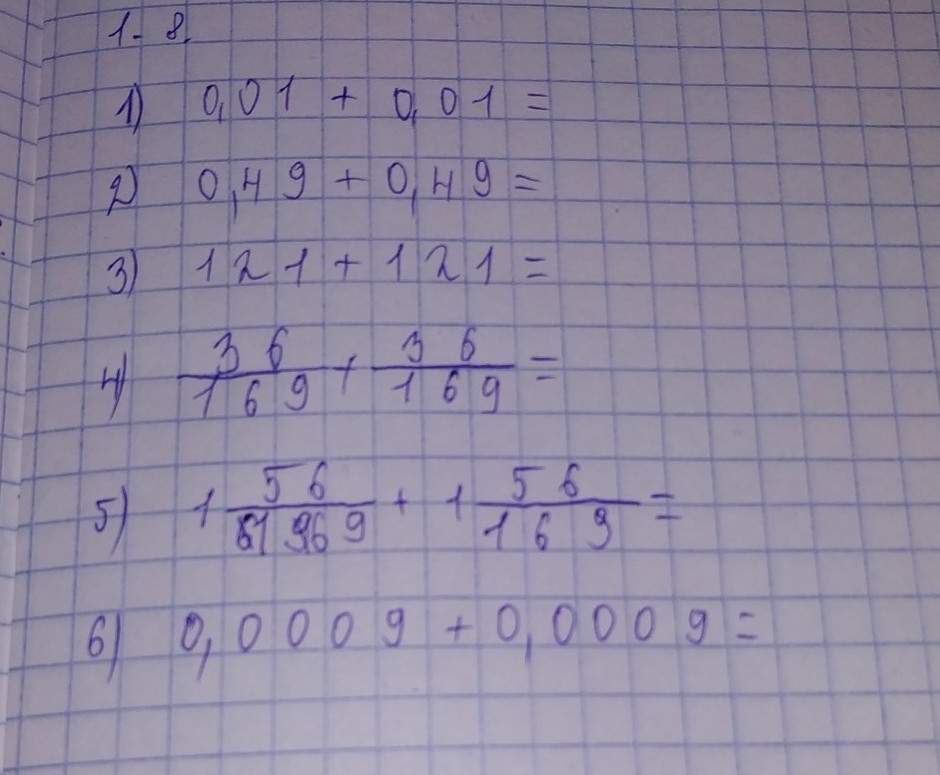 1-8.
1) 0,01 + 0,01 =
2) 0,49 + 0,49 =
3) 121 + 121 =
4) 36/169 + 36/169 =
5) 1 56/169 + 1 56/169 =
6) 0,0009 + 0,0009 =